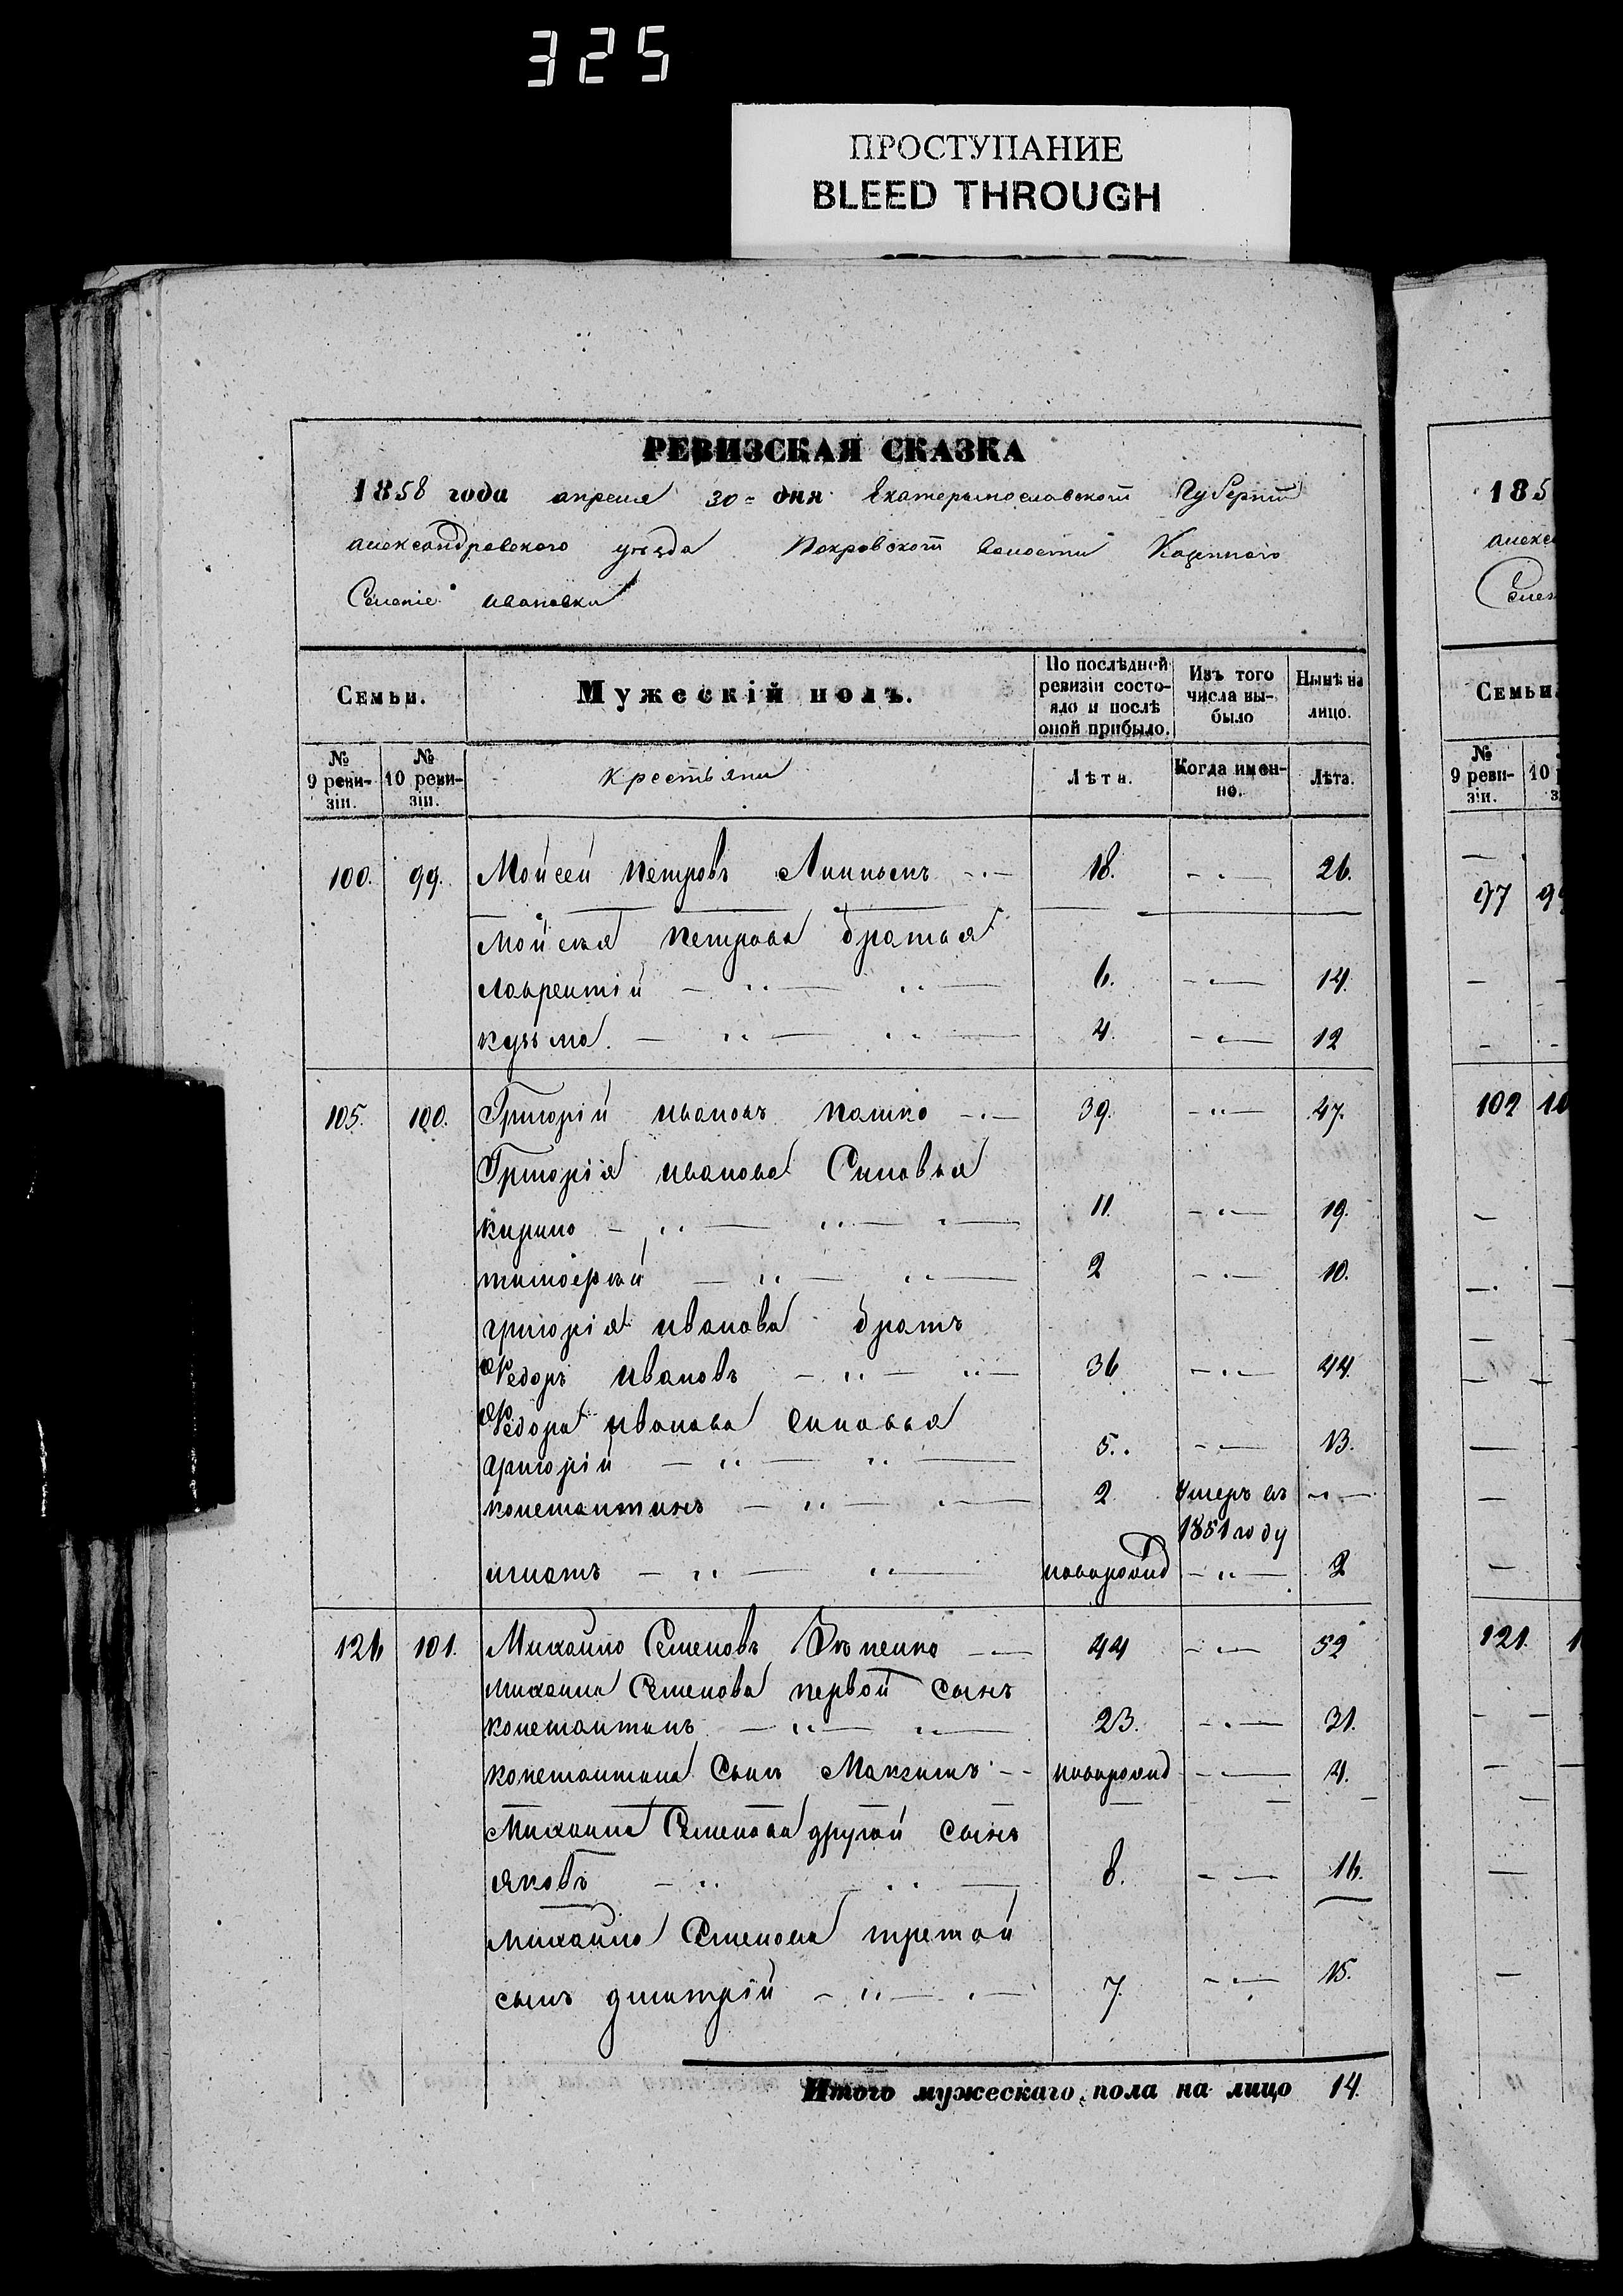 325
ПРОСТУПАНИЕ
BLEED THROUGH
РЕВИЗСКАЯ СКАЗКА
1858 года апреля 30 = дня Екатеринославской Губернии
александровского уезда Покровской волости Казенного
Селенія ивановки
Семьи.
Мужескій полъ.
По послѣдней ревизіи состояло и послѣ оной прибыло.
Изъ того числа выбыло
Нынѣ на лицо.
№ 9 ревизіи.
№ 10 ревизіи.
крестьяни
Лѣта.
Когда именно.
Лѣта.
100. 99. Мойсей петровъ 18. 26.
мойсея петрова братья
лаврентій 6. 14.
кузьма. 4. 12
105. 100. Григорій ивановъ 39. 47.
Григорія иванова Сыновья
кирило 11. 19.
тимофей 2 10.
григорія иванова братъ
Федоръ ивановъ 36 44.
Федора иванова сыновья
григорій 5. 13.
константинъ 2 Умеръ въ
1851 году
игнатъ новорожд 2
126 101. Михайло Семеновъ 44 52
михаила Семенова первой сынъ
константинъ 23. 31.
константина Сынъ Максимъ новорожд 4.
Михаила Семенова другой сынъ
яковъ 8. 16.
михайло Семенова третой
сынъ дмитрій 7. 15.
Итого мужескаго пола на лицо 14.
185
алекса
Селен
Семьи
№ 9 ревизіи.
10
97
102
121.